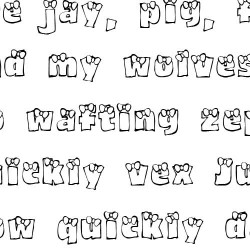 e jay, pig, f
d my wolves
wafting ze
uickly vex ju
ow quickly d